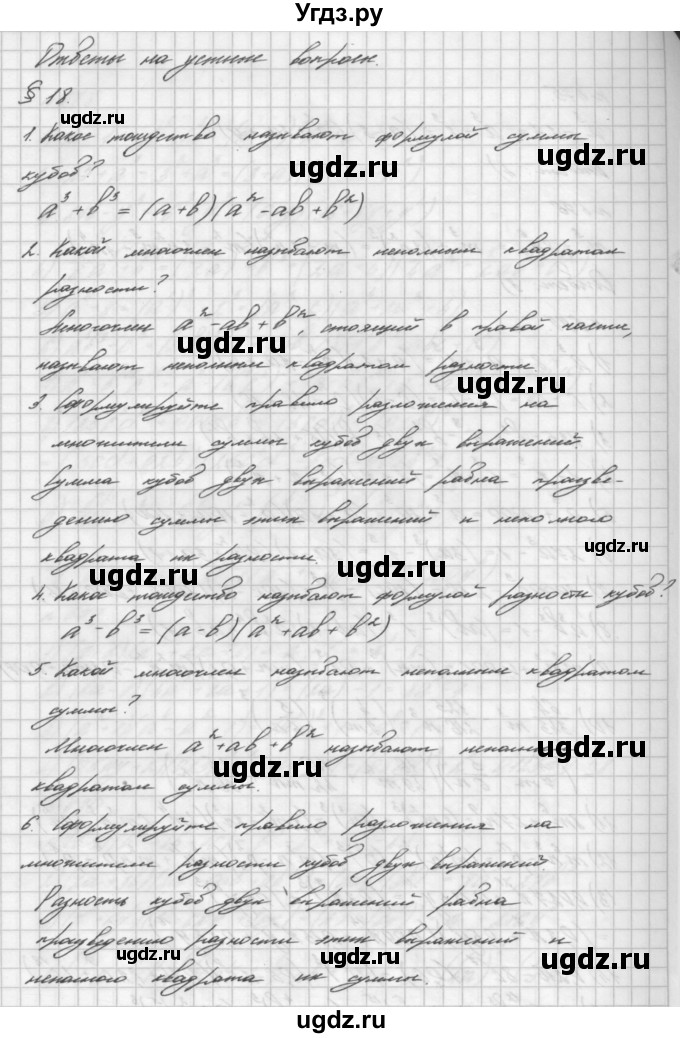 Угдз.ру
Ответы на устные вопросы.
§ 18.
1. Какое тождество называют формулой суммы
кубов?
a³ + b³ = (a+b)(a² - ab + b²)
2. Какой многочлен называют неполным квадратом
разности?
Многочлен a² - ab + b², стоящий в правой части,
называют неполным квадратом разности
3. Сформулируйте правило разложения на
множители суммы кубов двух выражений.
Сумма кубов двух выражений равна произве-
дению суммы этих выражений и неполного
квадрата их разности.
4. Какое тождество называют формулой разности кубов?
a³ - b³ = (a-b)(a² + ab + b²)
5. Какой многочлен называют неполным квадратом
суммы?
Многочлен a² + ab + b² называют неполным
квадратом суммы.
6. Сформулируйте правило разложения на
множители разности кубов двух выражений
Разность кубов двух выражений равна
произведению разности этих выражений и
неполного квадрата их суммы.
ugdz.ru